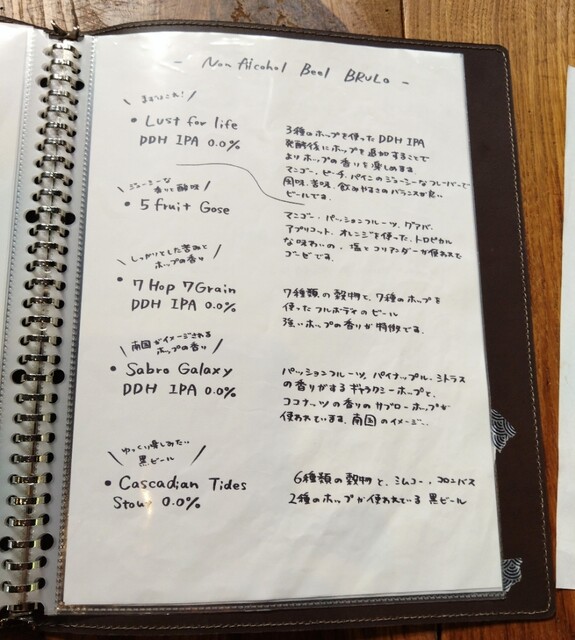 - Non Alcohol Beel BRULO -
まずはこれ!
• Lust for life
DDH IPA 0.0%
3種のホップを使った DDH IPA
発酵後にホップを追加することで
よりホップの香りを楽しめます
マンゴー、ピーチ、パインのジューシーなフレーバーで
風味、苦味、飲みやすさのバランスが良い
ビールです。
ジューシーな
香りと酸味
• 5 fruit Gose
マンゴー、パッションフルーツ、グアバ、
アプリコット、オレンジを使った、トロピカル
な味わいの、塩とコリアンダーが使われて
ゴーゼです。
しっかりとした苦みと
ホップの香り
• 7 Hop 7 Grain
DDH IPA 0.0%
7種類の穀物と、7種のホップを
使ったフルボディのビール
強いホップの香りが特徴です。
南国がイメージされる
ホップの香り
• Sabro Galaxy
DDH IPA 0.0%
パッションフルーツ、パイナップル、シトラス
の香りがするギャラクシーホップと、
ココナッツの香りのサブローホップが
使われています。南国のイメージ、
ゆっくり愉しみたい
黒ビール
• Cascadian Tides
Stout 0.0%
6種類の穀物と、シムコー、コロンバス
2種のホップが使われている 黒ビール